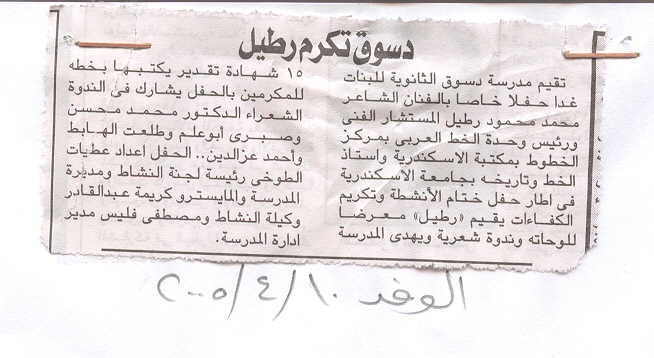 دسوق تكرم رطيل
تقيم مدرسة دسوق الثانوية للبنات
غدا حفلا خاصا بالفنان الشاعر
محمد محمود رطيل المستشار الفنى
ورئيس وحدة الخط العربى بمركز
الخطوط بمكتبة الاسكندرية وأستاذ
الخط وتاريخه بجامعة الاسكندرية
فى اطار حفل ختام الأنشطة وتكريم
الكفاءات يقيم «رطيل» معرضا
للوحاته وندوة شعرية ويهدى المدرسة
١٥ شهادة تقدير يكتبها بخطه
للمكرمين بالحفل يشارك فى الندوة
الشعراء الدكتور محمد محسن
وصبرى أبوعلم وطلعت الهابط
وأحمد عزالدين.. الحفل اعداد عطيات
الطوخى رئيسة لجنة النشاط ومديرة
المدرسة والمايسترو كريمة عبدالقادر
وكيلة النشاط ومصطفى فليس مدير
ادارة المدرسة.
الوفد ١٠/٤/٢٠٠٥